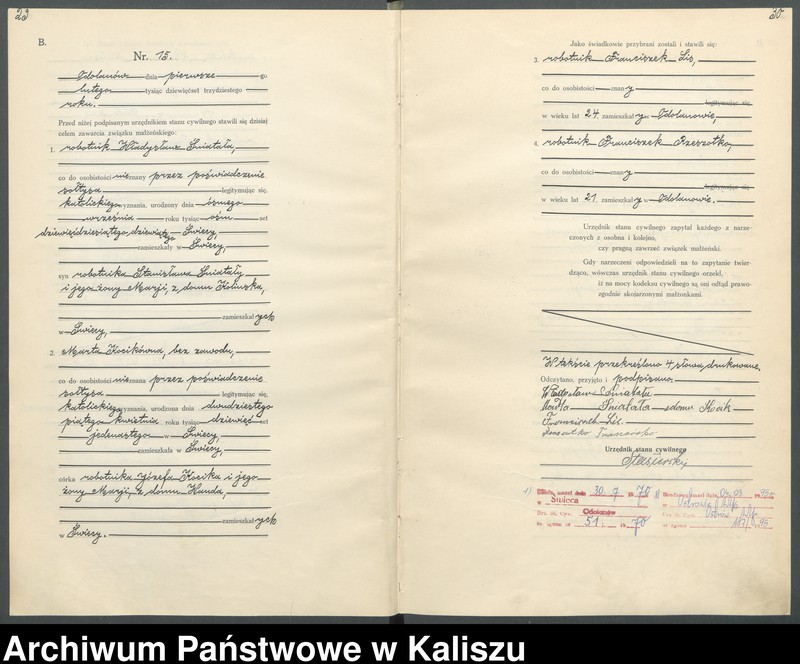 29
B.
Nr. 15.
Odolanów dnia pierwsze go
lutego tysiąc dziewięćset trzydziestego
roku.
Przed niżej podpisanym urzędnikiem stanu cywilnego stawili się dzisiaj
celem zawarcia związku małżeńskiego:
1. robotnik Władysław Śniatała,
co do osobistości nieznany przez poświadczenie
sołtysa legitymując się,
katolickiego wyznania, urodzony dnia ósmego
września roku tysiąc ośm set
dziewięćdziesiątego dziewiątego Świecy,
zamieszkały w Świecy,
syn robotnika Stanisława Śniatały
i jego żony Marji, z domu
zamieszkałych
w Świecy,
2. Marta Kocikówna, bez zawodu,
co do osobistości nieznana przez poświadczenie
sołtysa legitymując się,
katolickiego wyznania, urodzona dnia dwudziestego
piątego kwietnia roku tysiąc dziewięć set
jedenastego w Świecy,
zamieszkała w Świecy,
córka robotnika Józefa Kocika i jego
żony Marji, z domu Handa,
zamieszkałych
w Świecy.
30
Jako świadkowie przybrani zostali i stawili się:
3. robotnik Franciszek Lis,
co do osobistości znany
legitymując się,
w wieku lat 24, zamieszkały w Odolanowie,
4. robotnik Franciszek Rzeszotko,
co do osobistości znany
legitymując się,
w wieku lat 21, zamieszkały w Odolanowie.
Urzędnik stanu cywilnego zapytał każdego z narze-
czonych z osobna i kolejno,
czy pragną zawrzeć związek małżeński.
Gdy narzeczeni odpowiedzieli na to zapytanie twier-
dząco, wówczas urzędnik stanu cywilnego orzekł,
iż na mocy kodeksu cywilnego są oni odtąd prawo-
zgodnie skojarzonymi małżonkami.
W tekście przekreślono 4 słowa drukowane.
Odczytano, przyjęto i podpisano:
Władysław Śniatała
Marta Śniatała zdomu Kocik
Franciszek Lis.
Rzeszotko Franciszek
Urzędnik stanu cywilnego
1) zmarł dnia 30.7 1970
w Świeca
Urz. St. Cyw. Odolanów
Nr. 51 19 70
dnia 04.03 1995
w Ostrowie Wlkp.
Urz. St. Cyw. Ostrów Wlkp.
Nr zgonu 95
Archiwum Państwowe w Kaliszu